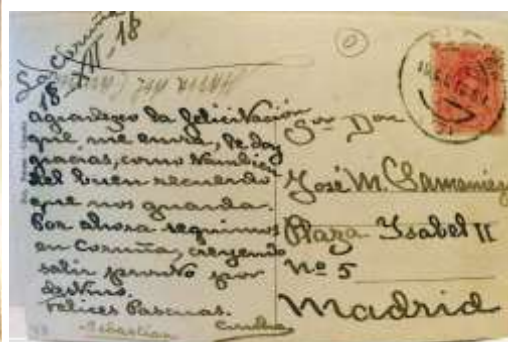 La Coruña
18-XII-18
agradezco la felicitación
que me envia, le doy
gracias, como tambien
del buen recuerdo
que nos guarda.
Por ahora seguimos
en Coruña, creyendo
salir pronto por
destino.
Felices Pascuas.
Sebastian
Sr. Don
José M. Samaniego
Plaza Isabel II
Nº 5
Madrid